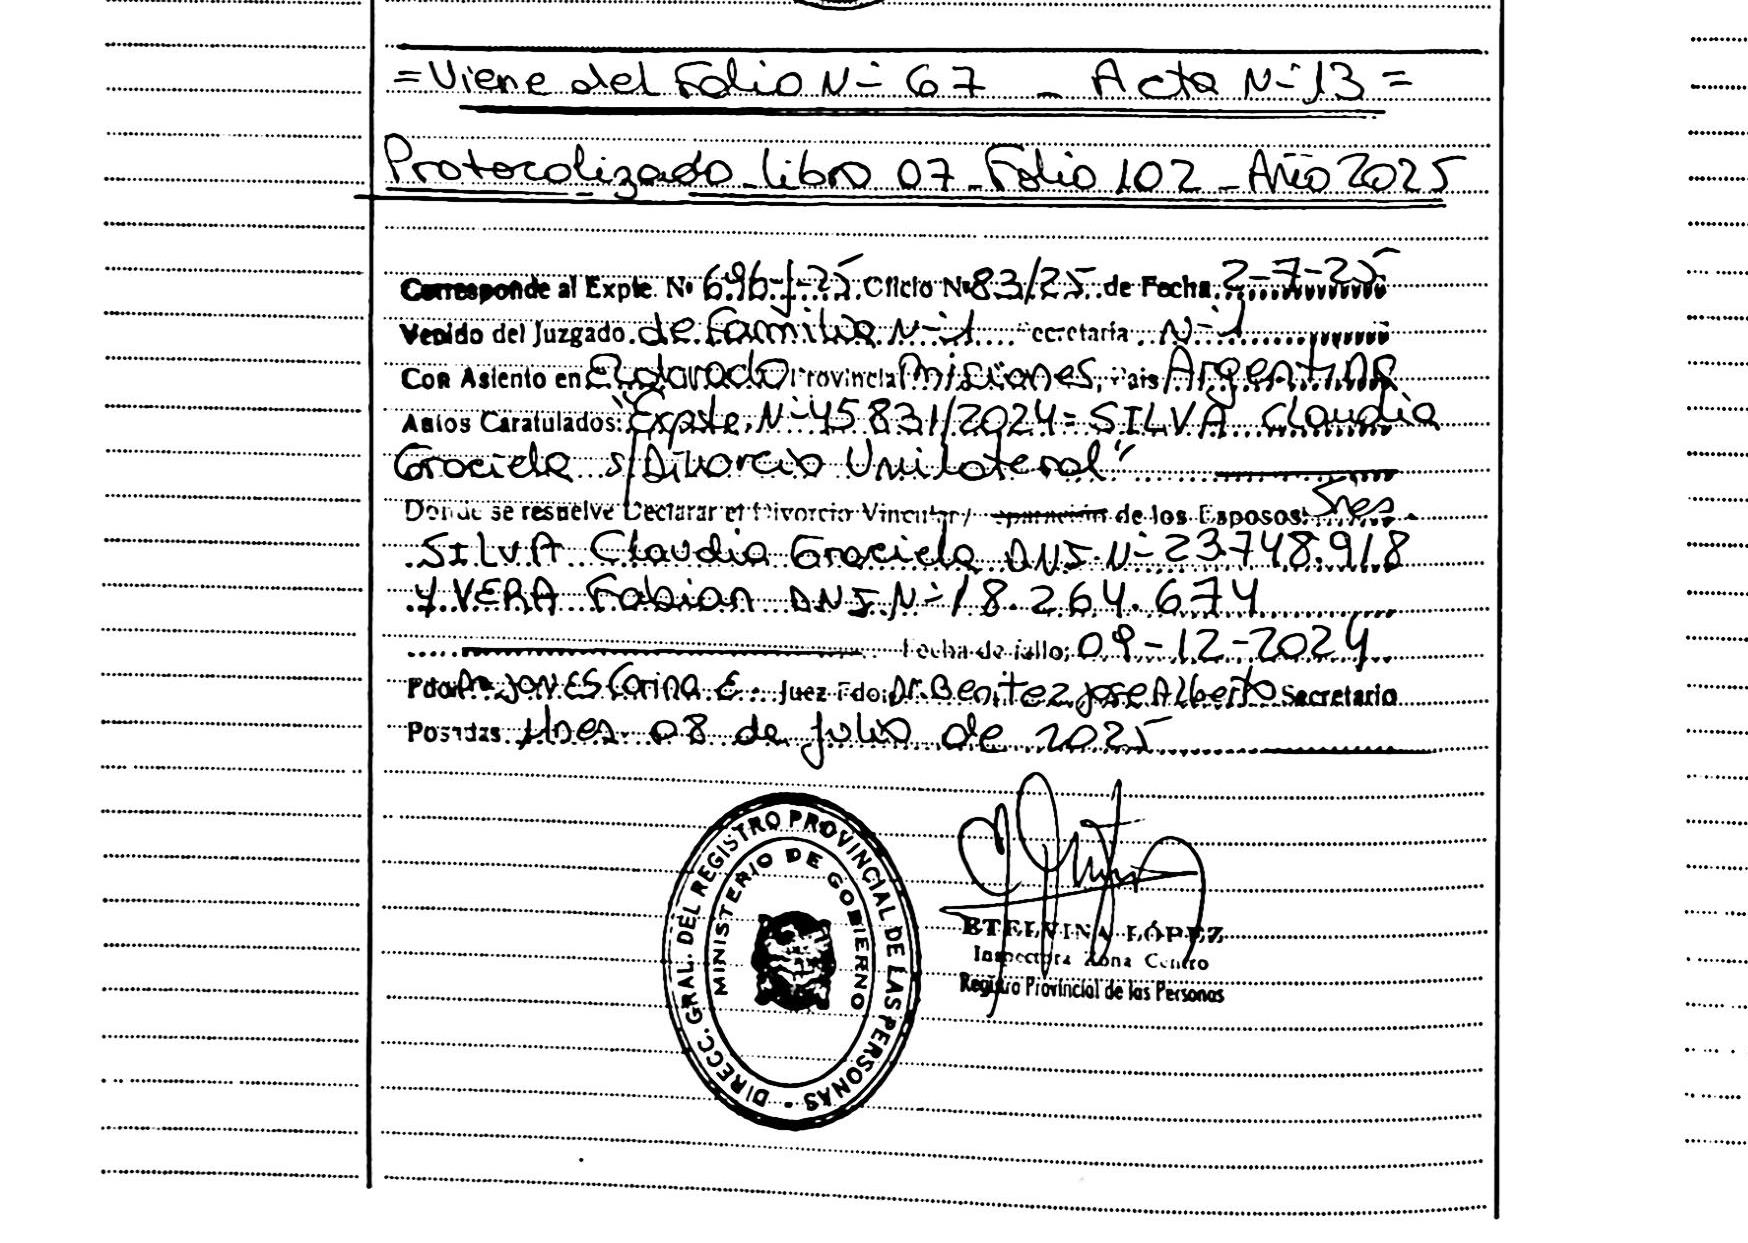 =Viene del Folio Nº 67 - Acta Nº 13=
Protocolizado Libro 07 - Folio 102 - Año 2025
Corresponde al Expte. Nº 696-J-25 Oficio Nº 83/25 de Fecha 2-7-25
Venido del Juzgado de Familia Nº 1 Secretaría Nº 1
Con Asiento en Eldorado Provincia Misiones, País Argentina
Autos Caratulados: "Expte. Nº 45831/2024 = SILVA Claudia
Graciela s/Divorcio Unilateral"
Donde se resuelve Declarar el Divorcio Vincular / separación de los Esposos: Sres.
SILVA Claudia Graciela DNI. Nº 23.748.918
y VERA Fabian DNI. Nº 18.264.674
Fecha de fallo: 09-12-2024
Fdo: Dra. JONES Carina E. Juez Fdo: Dr. Benitez Jose Alberto Secretario
Posadas, Mnes. 08 de julio de 2025
DIRECC. GRAL. DEL REGISTRO PROVINCIAL DE LAS PERSONAS -
MINISTERIO DE GOBIERNO
ETELVINA LÓPEZ
Inspectora Zona Centro
Registro Provincial de las Personas